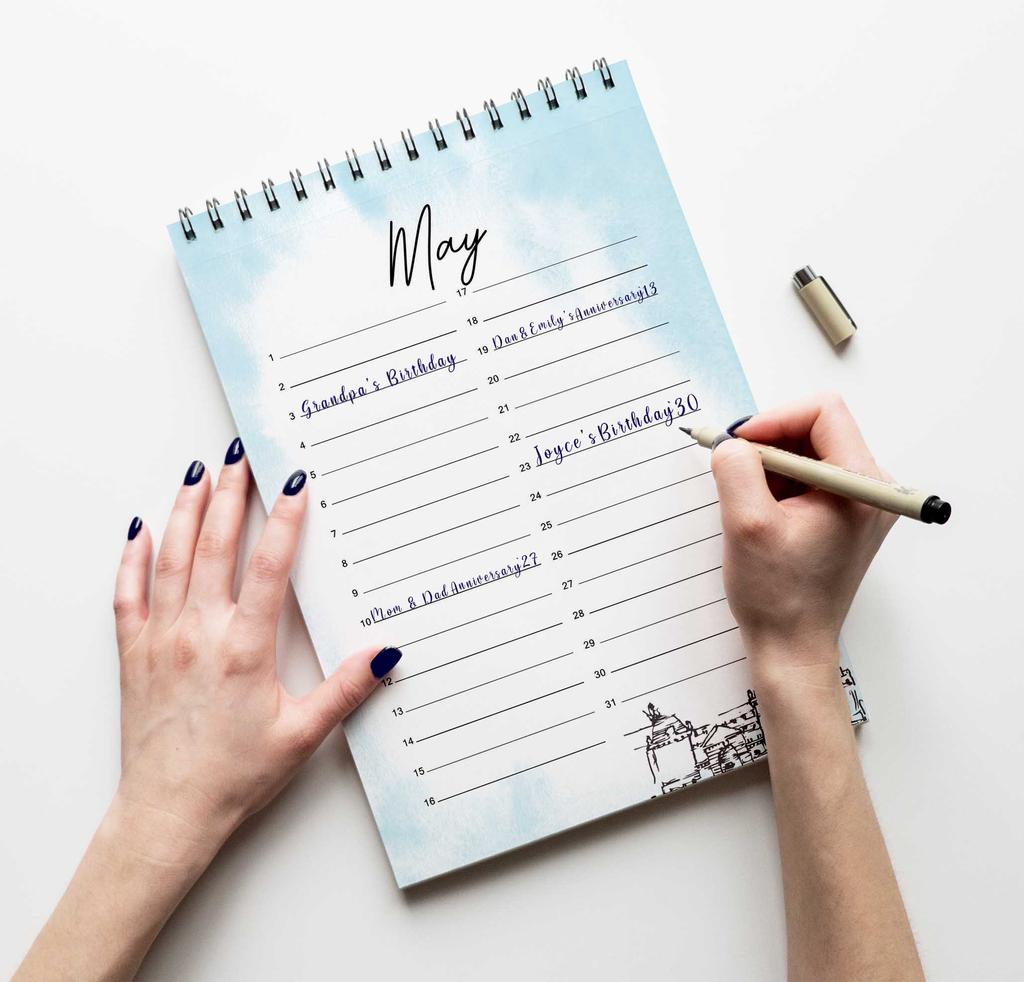 May
1
2
3 Grandpa's Birthday
4
5
6
7
8
9
10 Mom & Dad Anniversary'27
12
13
14
15
16
17
18
19 Dan & Emily's Anniversary'13
20
21
22
23 Joyce's Birthday'30
24
25
26
27
28
29
30
31